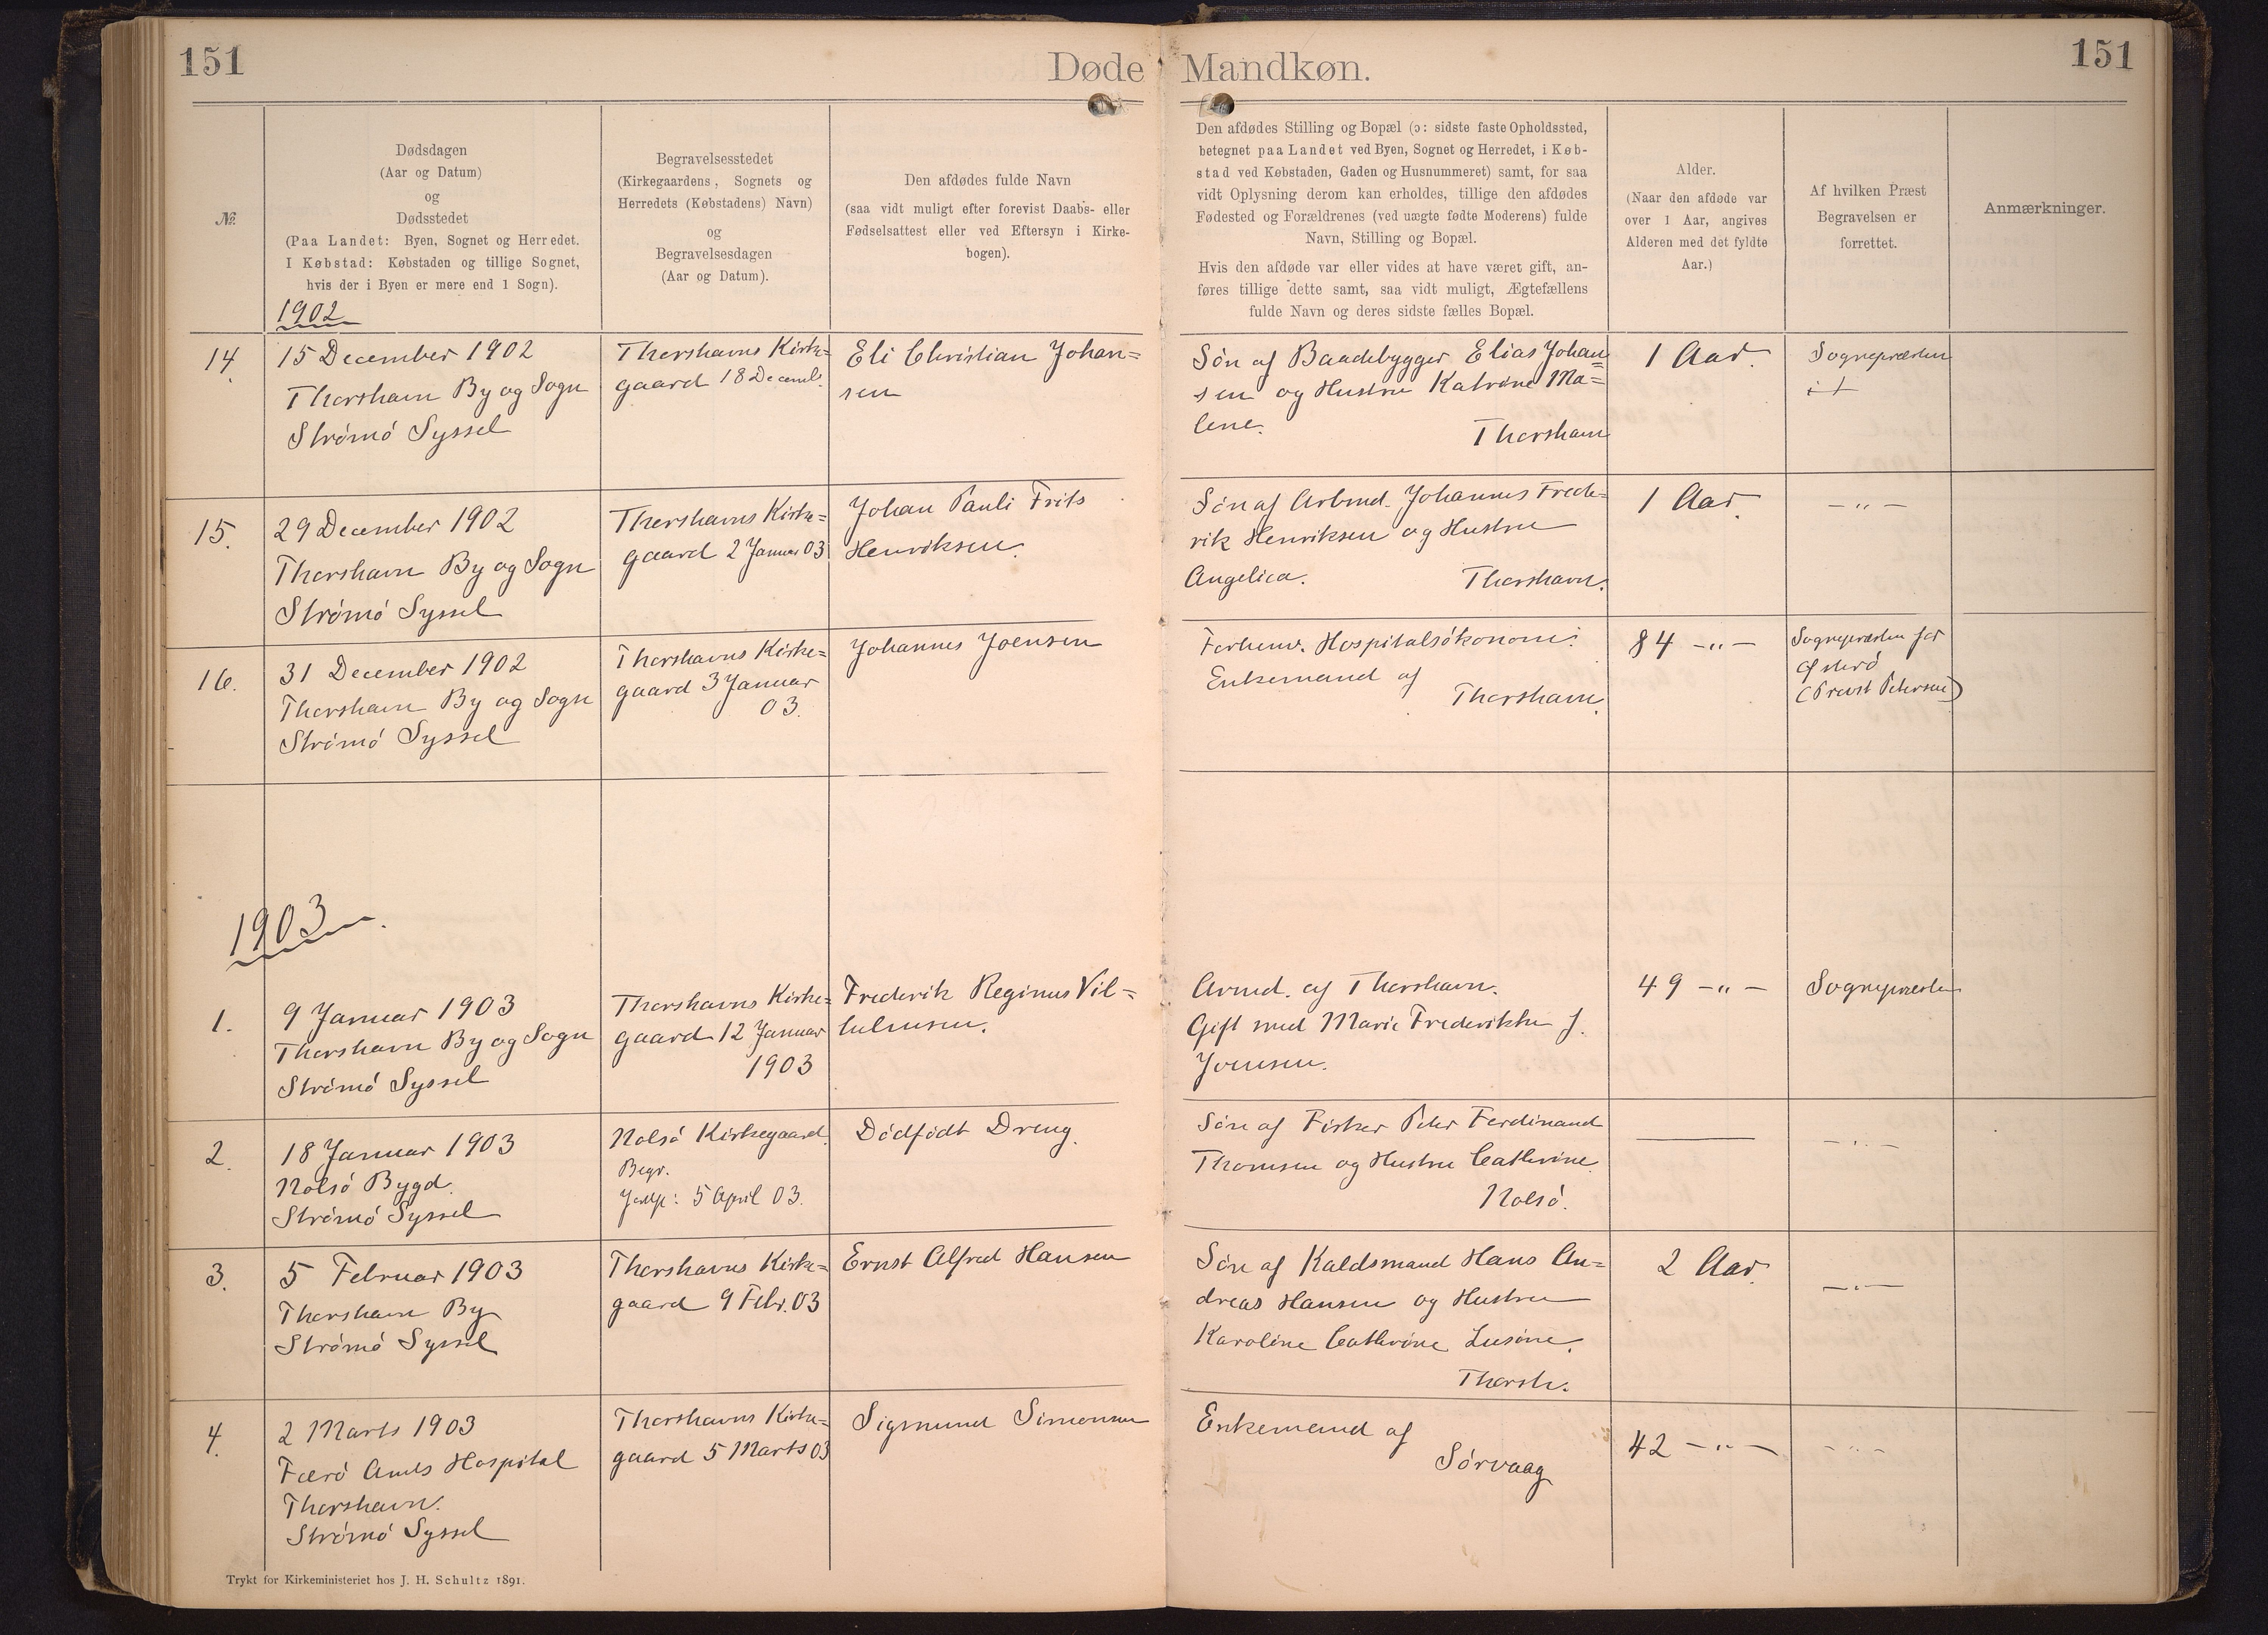 151
Døde Mandkøn.
151
№.
Dødsdagen
(Aar og Datum)
og
Dødsstedet
(Paa Landet: Byen, Sognet og Herredet.
I Købstad: Købstaden og tillige Sognet,
hvis der i Byen er mere end 1 Sogn).
Begravelsesstedet
(Kirkegaardens, Sognets og
Herredets (Købstadens) Navn)
og
Begravelsesdagen
(Aar og Datum).
Den afdødes fulde Navn
(saa vidt muligt efter forevist Daabs- eller
Fødselsattest eller ved Eftersyn i Kirke-
bogen).
Den afdødes Stilling og Bopæl (ɔ: sidste faste Opholdssted,
betegnet paa Landet ved Byen, Sognet og Herredet, i Køb-
stad ved Købstaden, Gaden og Husnummeret) samt, for saa
vidt Oplysning derom kan erholdes, tillige den afdødes
Fødested og Forældrenes (ved uægte fødte Moderens) fulde
Navn, Stilling og Bopæl.
Hvis den afdøde var eller vides at have været gift, an-
føres tillige dette samt, saa vidt muligt, Ægtefællens
fulde Navn og deres sidste fælles Bopæl.
Alder.
(Naar den afdøde var
over 1 Aar, angives
Alderen med det fyldte
Aar.)
Af hvilken Præst
Begravelsen er
forrettet.
Anmærkninger.
1902
14.
15 December 1902
Thorshavn By og Sogn
Strømø Syssel
Thorshavns Kirke=
gaard 18 Decemb.
Eli Christian Johan=
sen
Søn af Baadebygger Elias Johan=
sen og Hustru Katrine Ma=
lene.
Thorshavn
1 Aar.
Sognepræsten
15.
29 December 1902
Thorshavn By og Sogn
Strømø Syssel
Thorshavns Kirke=
gaard 2 Januar 03
Johan Pauli Frits
Henriksen.
Søn af Arbmd. Johannes Frede=
rik Henriksen og Hustru
Angelica.
Thorshavn.
1 Aar.
— " —
16.
31 December 1902
Thorshavn By og Sogn
Strømø Syssel
Thorshavns Kirke=
gaard 3 Januar
03.
Johannes Joensen
Forhenv. Hospitalsøkonom:
Enkemand af
Thorshavn.
84 — " —
Sognepræsten for
Østerø
(Provst Petersen)
1903.
1.
9 Januar 1903
Thorshavn By og Sogn
Strømø Syssel
Thorshavns Kirke=
gaard 12 Januar
1903
Frederik Reginus Vil=
helmsen.
Armd. af Thorshavn.
Gift med Marie Frederikke f.
Joensen.
49 — " —
Sognepræsten
2.
18 Januar 1903
Nolsø Bygd.
Strømø Syssel
Nolsø Kirkegaard.
Begr.
Jordp: 5 April 03.
Dødfødt Dreng.
Søn af Fisker Peter Ferdinand
Thomsen og Hustru Cathrine.
Nolsø.
—
— " —
3.
5 Februar 1903
Thorshavn By
Strømø Syssel
Thorshavns Kirke=
gaard 9 Febr. 03
Ernst Alfred Hansen
Søn af Kuldsmand Hans An=
dreas Hansen og Hustru
Karoline Cathrine Lusine.
Thorsh.
2 Aar.
— " —
4.
2 Marts 1903
Færø Amts Hospital
Thorshavn.
Strømø Syssel
Thorshavns Kirke=
gaard 5 Marts 03
Sigmund Simonsen
Enkemand af
Sørvaag
42 — " —
— " —
Trykt for Kirkeministeriet hos J. H. Schultz 1891.